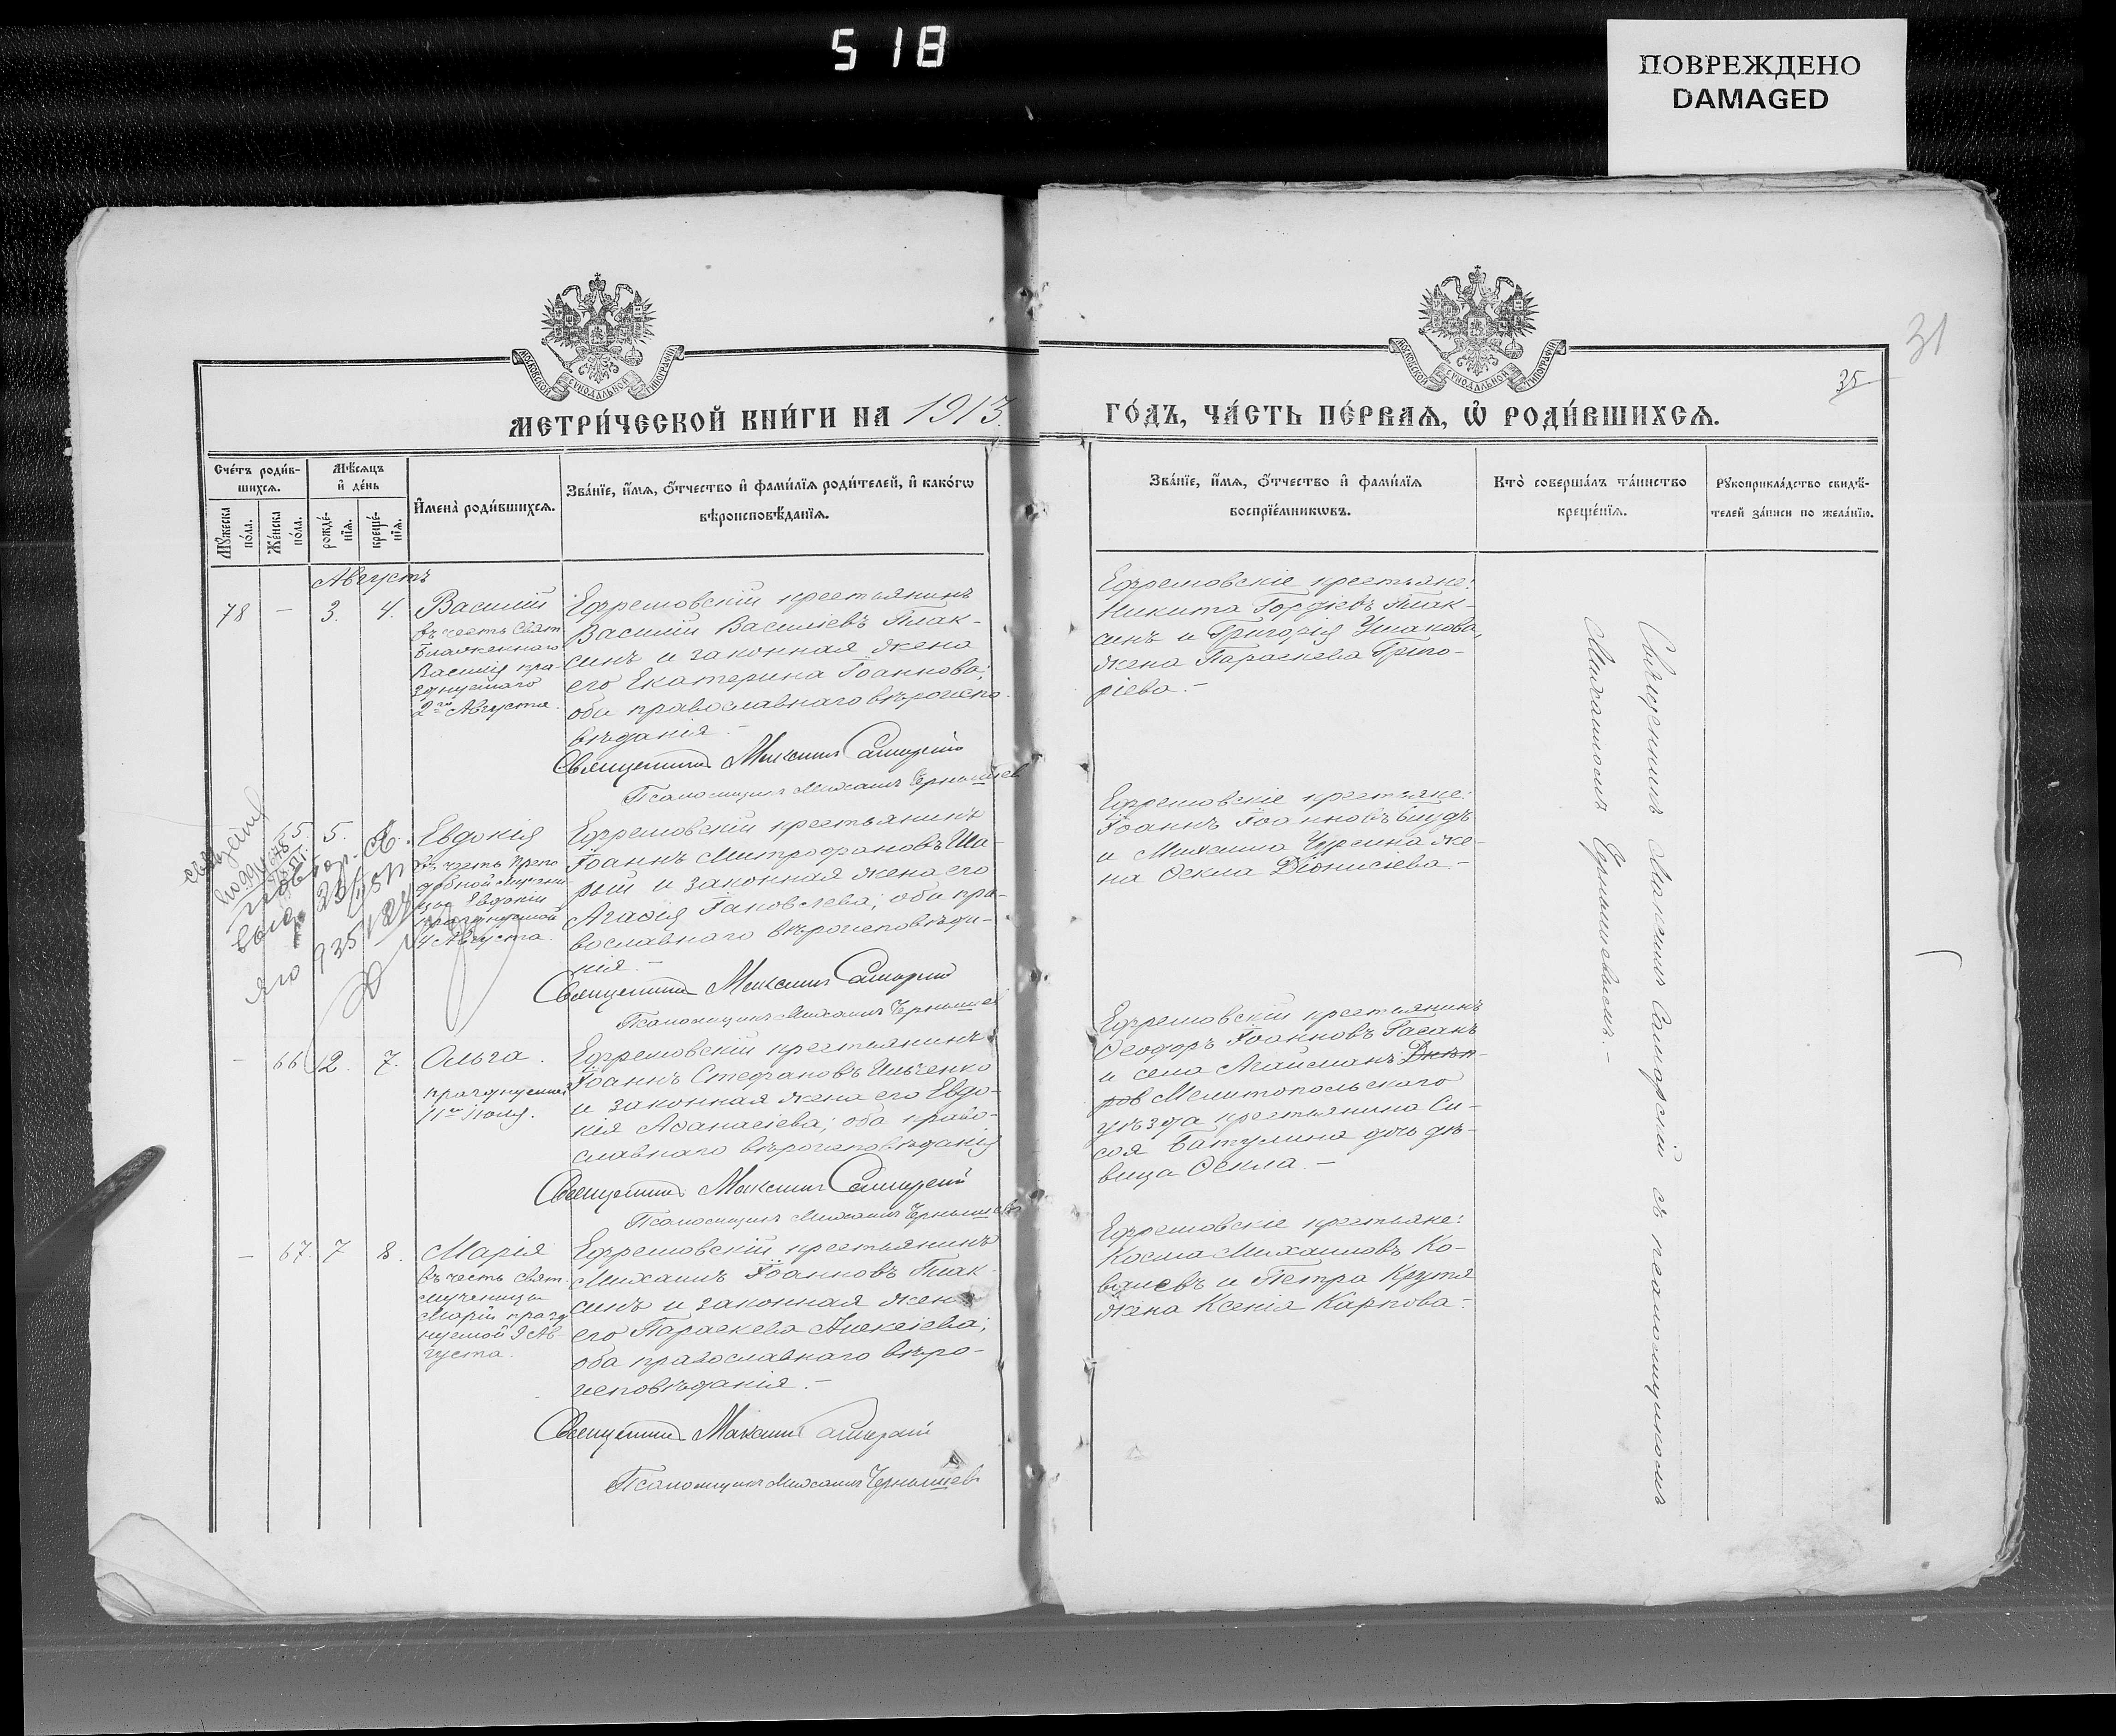 518
ПОВРЕЖДЕНО
DAMAGED
31
35
МОСКОВСКОЙ СѴНОДАЛЬНОЙ ТИПОГРАФІИ
МОСКОВСКОЙ СѴНОДАЛЬНОЙ ТИПОГРАФІИ
МЕТРИ́ЧЕСКОЙ КНИ́ГИ НА 1913
ГО́ДЪ, ЧА́СТЬ ПЕ́РВАѦ, Ѡ РОДИ́ВШИХСѦ.
Сче́тъ роди́в-
шихсѧ.
Мꙋжеска
по́ла.
Же́нска
по́ла.
Мѣ́сѧцъ
и҆ де́нь
рожде́-
нїѧ.
креще́-
нїѧ.
И҆мена̀ роди́вшихсѧ.
Зва́нїе, и҆́мѧ, ѻ҆́тчество и҆ фами́лїѧ роди́телей, и҆ како́гѡ
вѣроисповѣ́данїѧ.
Зва́нїе, и҆́мѧ, ѻ҆́тчество и҆ фами́лїѧ
воспрїе́мникѡвъ.
Кто̀ соверша́лъ та́инство
креще́нїѧ.
Рꙋкоприкла́дство свидѣ́-
телей за́писи по жела́нїю.
Августъ
78 — 3. 4. Василій
въ честь Свят.
Блаженнаго
Василія пра-
зднуемаго
2го Августа.
Ефремовскій крестьянинъ
Василій Василіевъ Плак-
синъ и законная жена
его Екатерина Іоаннова;
оба православнаго вѣроиспо-
вѣданія.—
Священникъ Максимъ Самарскій
Псаломщикъ Михаилъ Чернышев
Ефремовскіе крестьяне:
Никита Гордіевъ Плак-
синъ и Григорія Ушакова
жена Параскева Григо-
ріева.—
65. 5. Евдокія
въ честь Препо-
добной мучени-
цы Евдокіи
празднуемой
4 Августа.
Ефремовскій крестьянинъ
Іоаннъ Митрофановъ Ша-
рый и законная жена его
Агафія Іаковлева; оба пра-
вославнаго вѣроисповѣда-
нія.—
Священникъ Максимъ Самарскій
Псаломщикъ Михаилъ Чернышев
Ефремовскіе крестьяне:
Іоаннъ Іоанновъ
и Михаила Чурсина же-
на Ѳекла Діонисіева.—
— 66 2. 7. Ольга.
празднуемой
11го Іюля.
Ефремовскій крестьянинъ
Іоаннъ Стефановъ Ильченко
и законная жена его Евдо-
кія Аѳанасіева; оба право-
славнаго вѣроисповѣданія
Священникъ Максимъ Самарскій
Псаломщикъ Михаилъ Чернышев
Ефремовскій крестьянинъ
Ѳеодоръ Іоанновъ Гасанъ
и села Агайманъ Днѣп-
ров Мелитопольскаго
уѣзда крестьянина Сы-
соя Батулина дочь дѣ-
вица Ѳекла.—
— 67. 7 8. Марія
въ честь Свят.
мученицы
Маріи празд
нуемой 9 Ав-
густа.
Ефремовскій крестьянинъ
Михаилъ Іоанновъ Плак-
синъ и законная жена
его Параскева Алексіева;
оба православнаго вѣро-
исповѣданія.—
Священникъ Максимъ Самарскій
Псаломщикъ Михаилъ Чернышев
Ефремовскіе крестьяне:
Косма Михаиловъ Ко-
валевъ и Петра Крутя
жена Ксенія Карпова.—
Священникъ Максимъ Самарскій съ псаломщикомъ
Михаиломъ Чернышевымъ.—